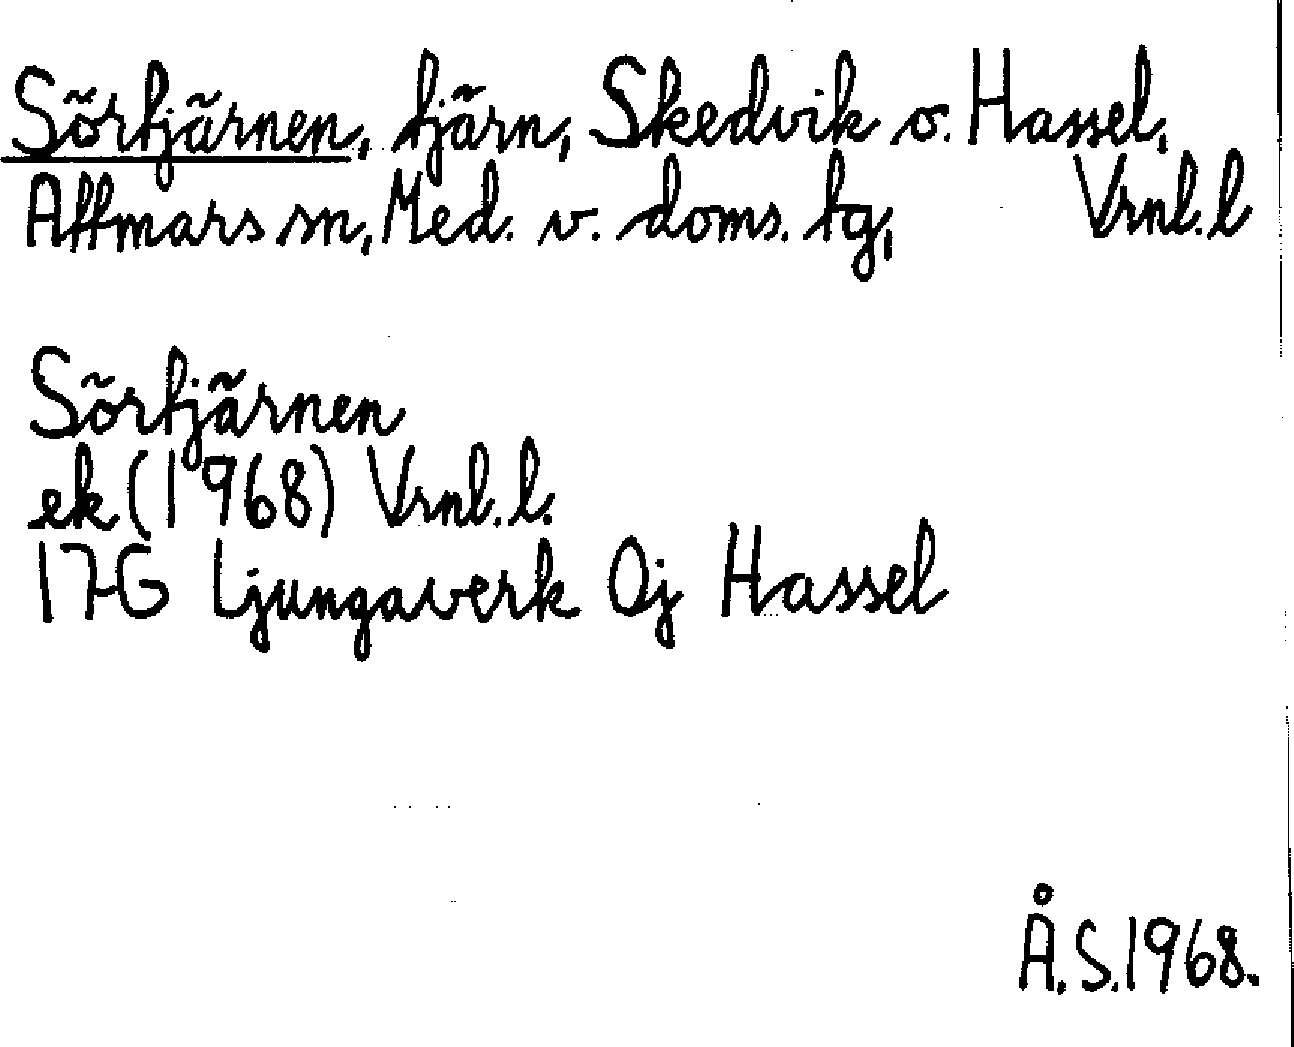 Sörtjärnen, tjärn, Skedvik o. Hassel,
Attmars sn, Med. v. doms. tg, Vrnl. l
Sörtjärnen
ek (1968) Vrnl. l.
17G Ljungaverk 0j Hassel
Å.S. 1968.